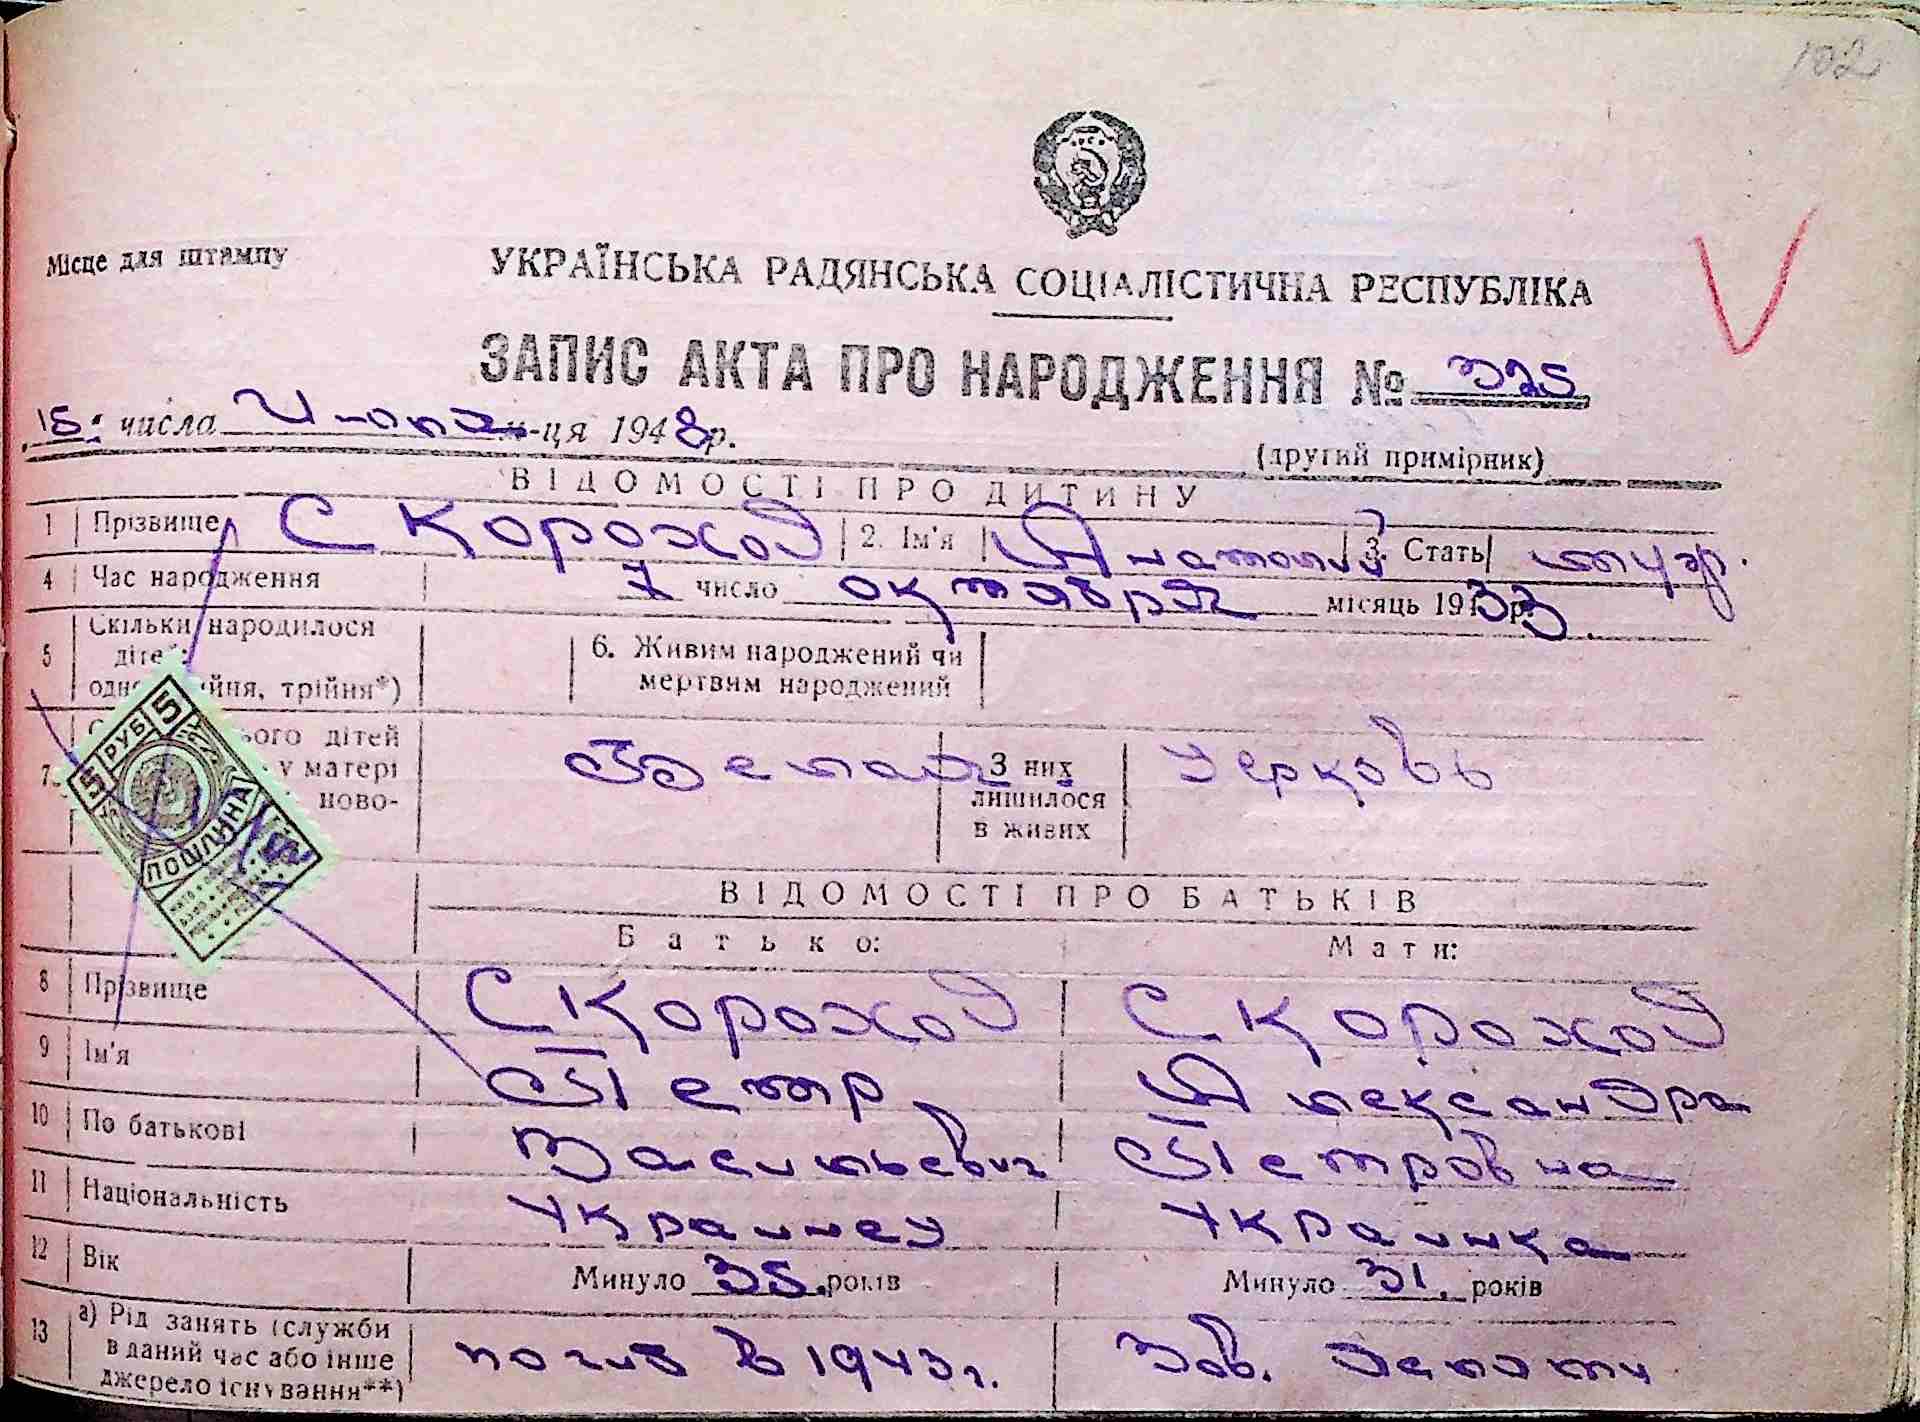 102
Місце для штампу
УКРАЇНСЬКА РАДЯНСЬКА СОЦІАЛІСТИЧНА РЕСПУБЛІКА
ЗАПИС АКТА ПРО НАРОДЖЕННЯ № 325
15. числа Июля м-ця 1948 р.
(другий примірник)
ВІДОМОСТІ ПРО ДИТИНУ
1 Прізвище Скороход 2. Ім'я Анатолий 3. Стать муж.
4 Час народження 7 число октября місяць 1933 р.
5 Скільки народилося дітей: одно ййня, трійня*)
6. Живим народжений чи мертвим народжений
7. ього дітей у матері ново-
З них лишилося в живих
5 РУБ 5
ПОШЛИНА
ВІДОМОСТІ ПРО БАТЬКІВ
Батько: Мати:
8 Прізвище Скороход Скороход
9 Ім'я Петр Александра
10 По батькові Васильевич Петровна
11 Національність Украинец Украинка
12 Вік Минуло 35. років Минуло 31. років
13 а) Рід занять (служби в даний час або інше джерело існування**) погиб в 1943 г. Зав.